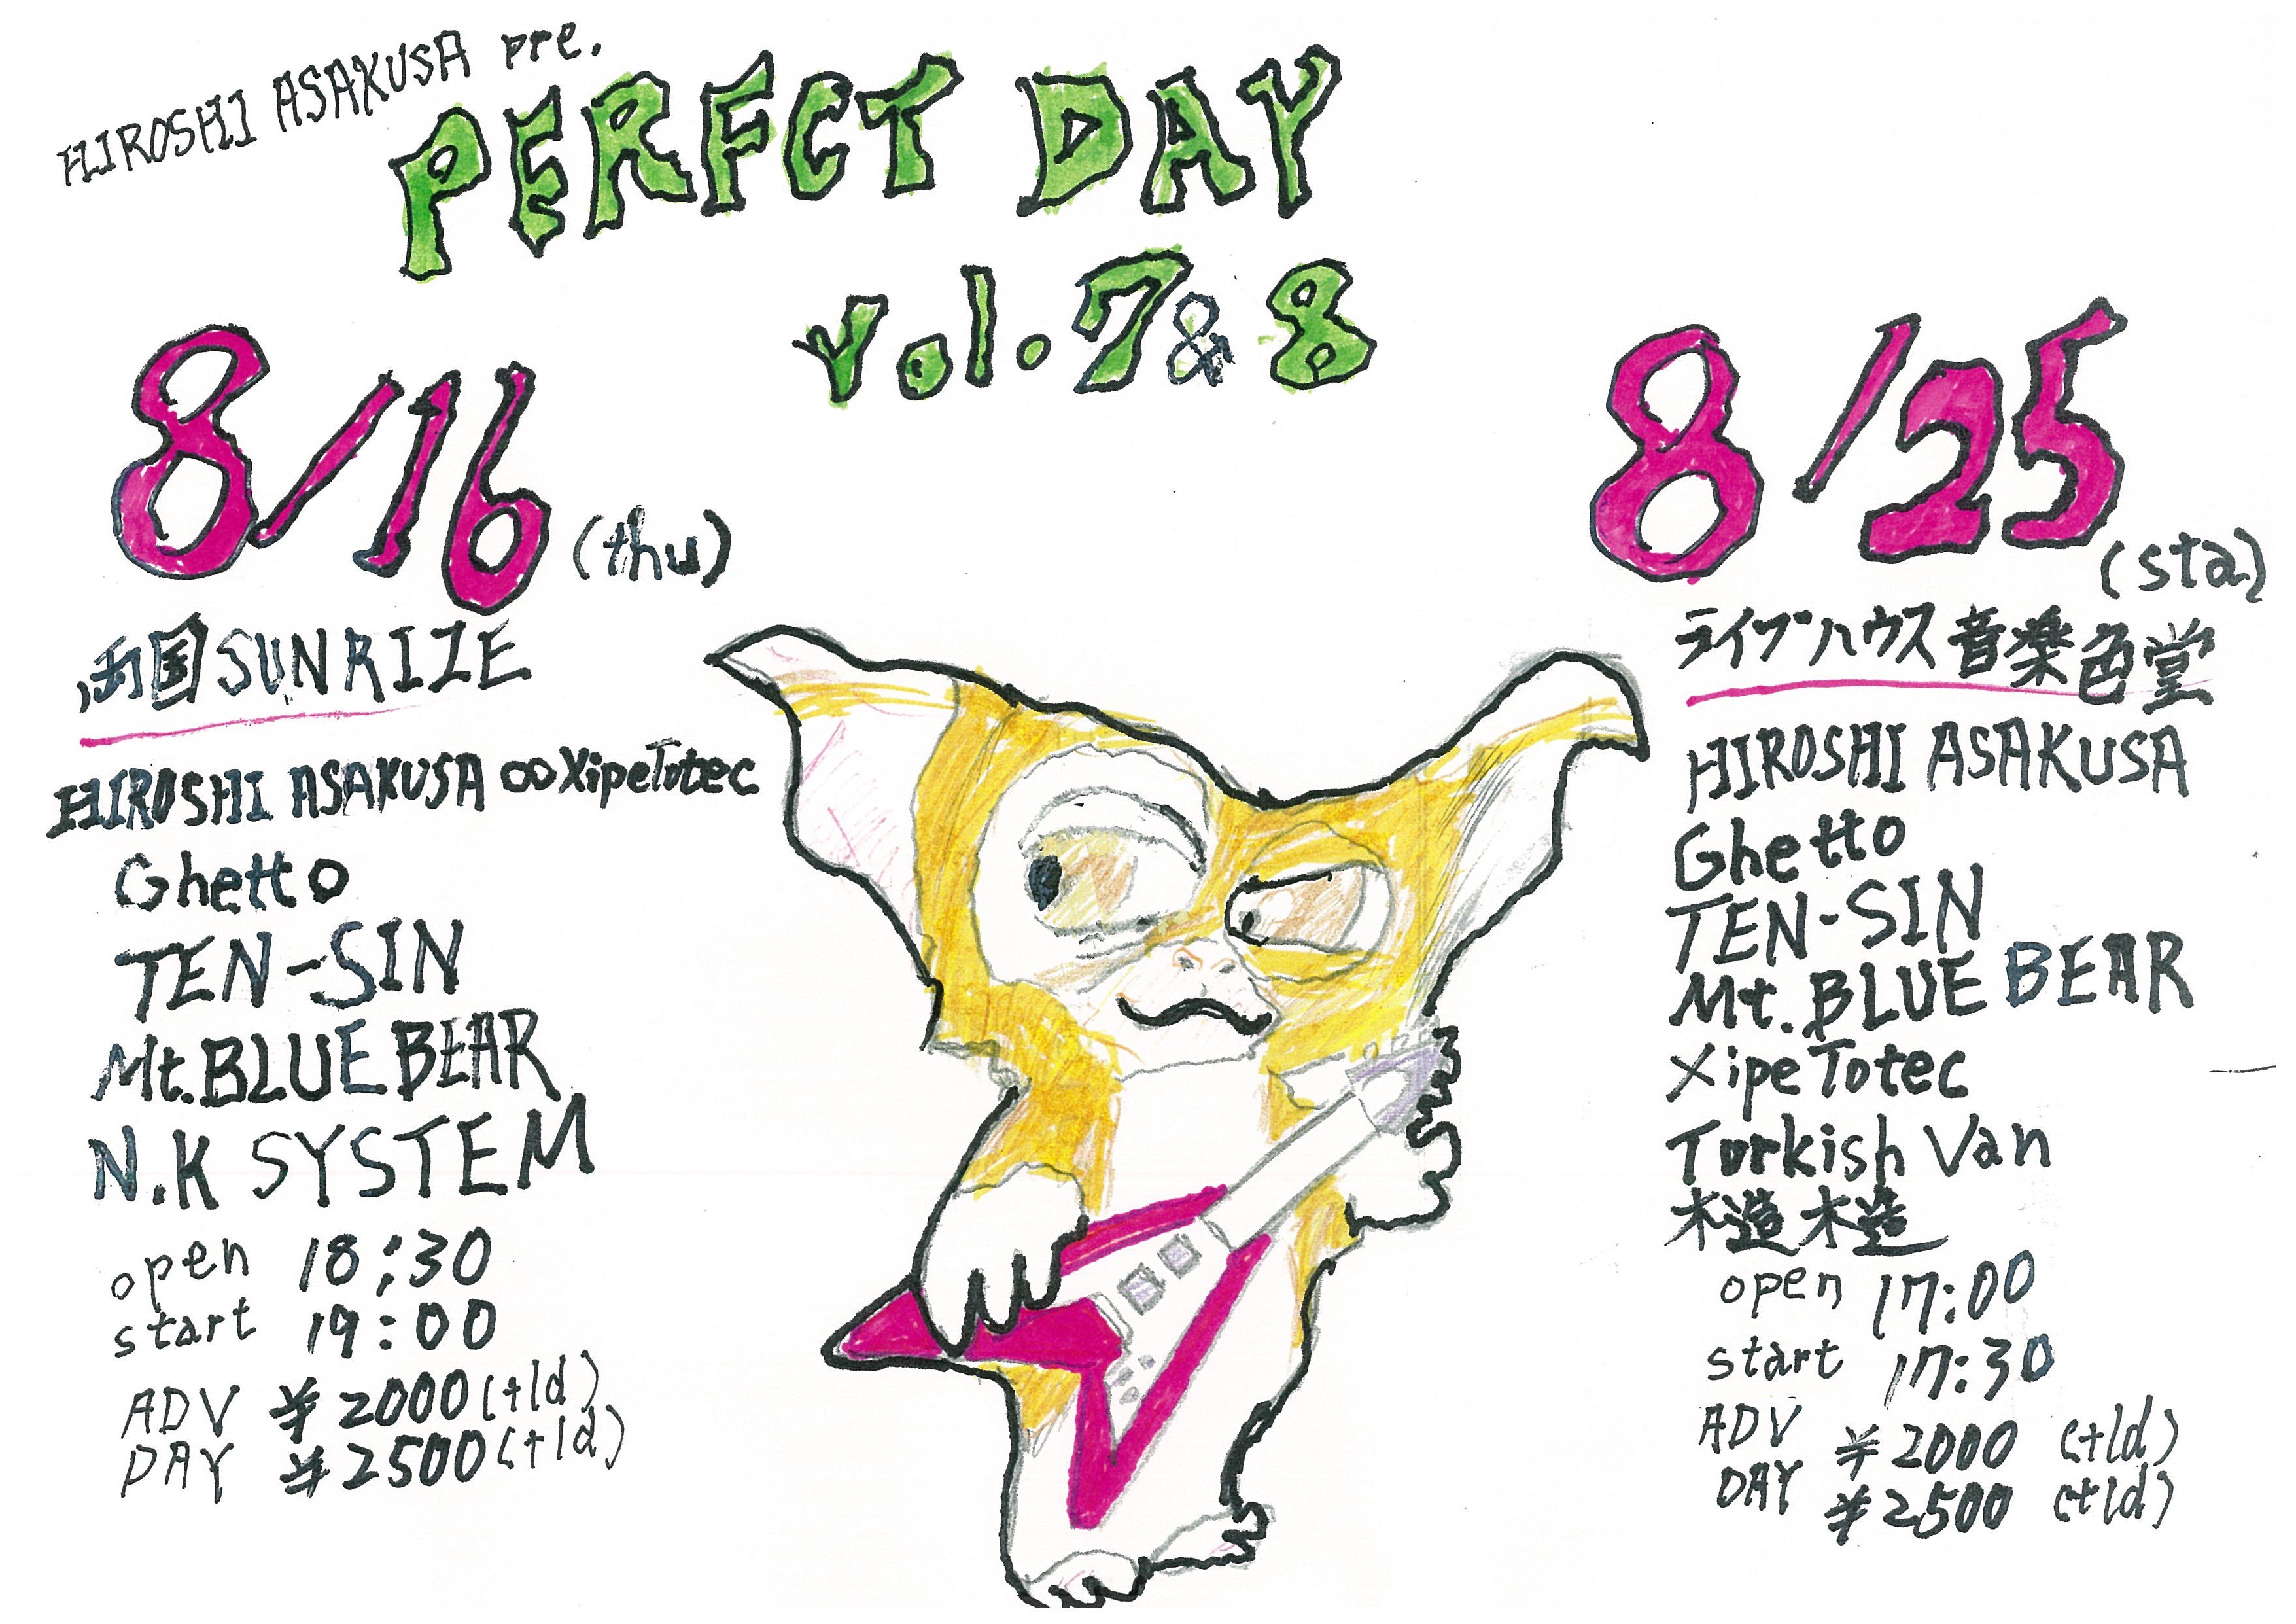 HIROSHI ASAKUSA pre.
PERFCT DAY
vol.7&8
8/16 (thu)
両国SUNRIZE
HIROSHI ASAKUSA ∞XipeTotec
Ghetto
TEN-SIN
Mt.BLUE BEAR
N.K SYSTEM
open 18:30
start 19:00
ADV ¥2000(+1d)
DAY ¥2500(+1d)
8/25 (sta)
ライブハウス音楽色堂
HIROSHI ASAKUSA
Ghetto
TEN-SIN
Mt.BLUE BEAR
XipeTotec
Torkish Van
木造木造
open 17:00
start 17:30
ADV ¥2000 (+1d)
DAY ¥2500 (+1d)